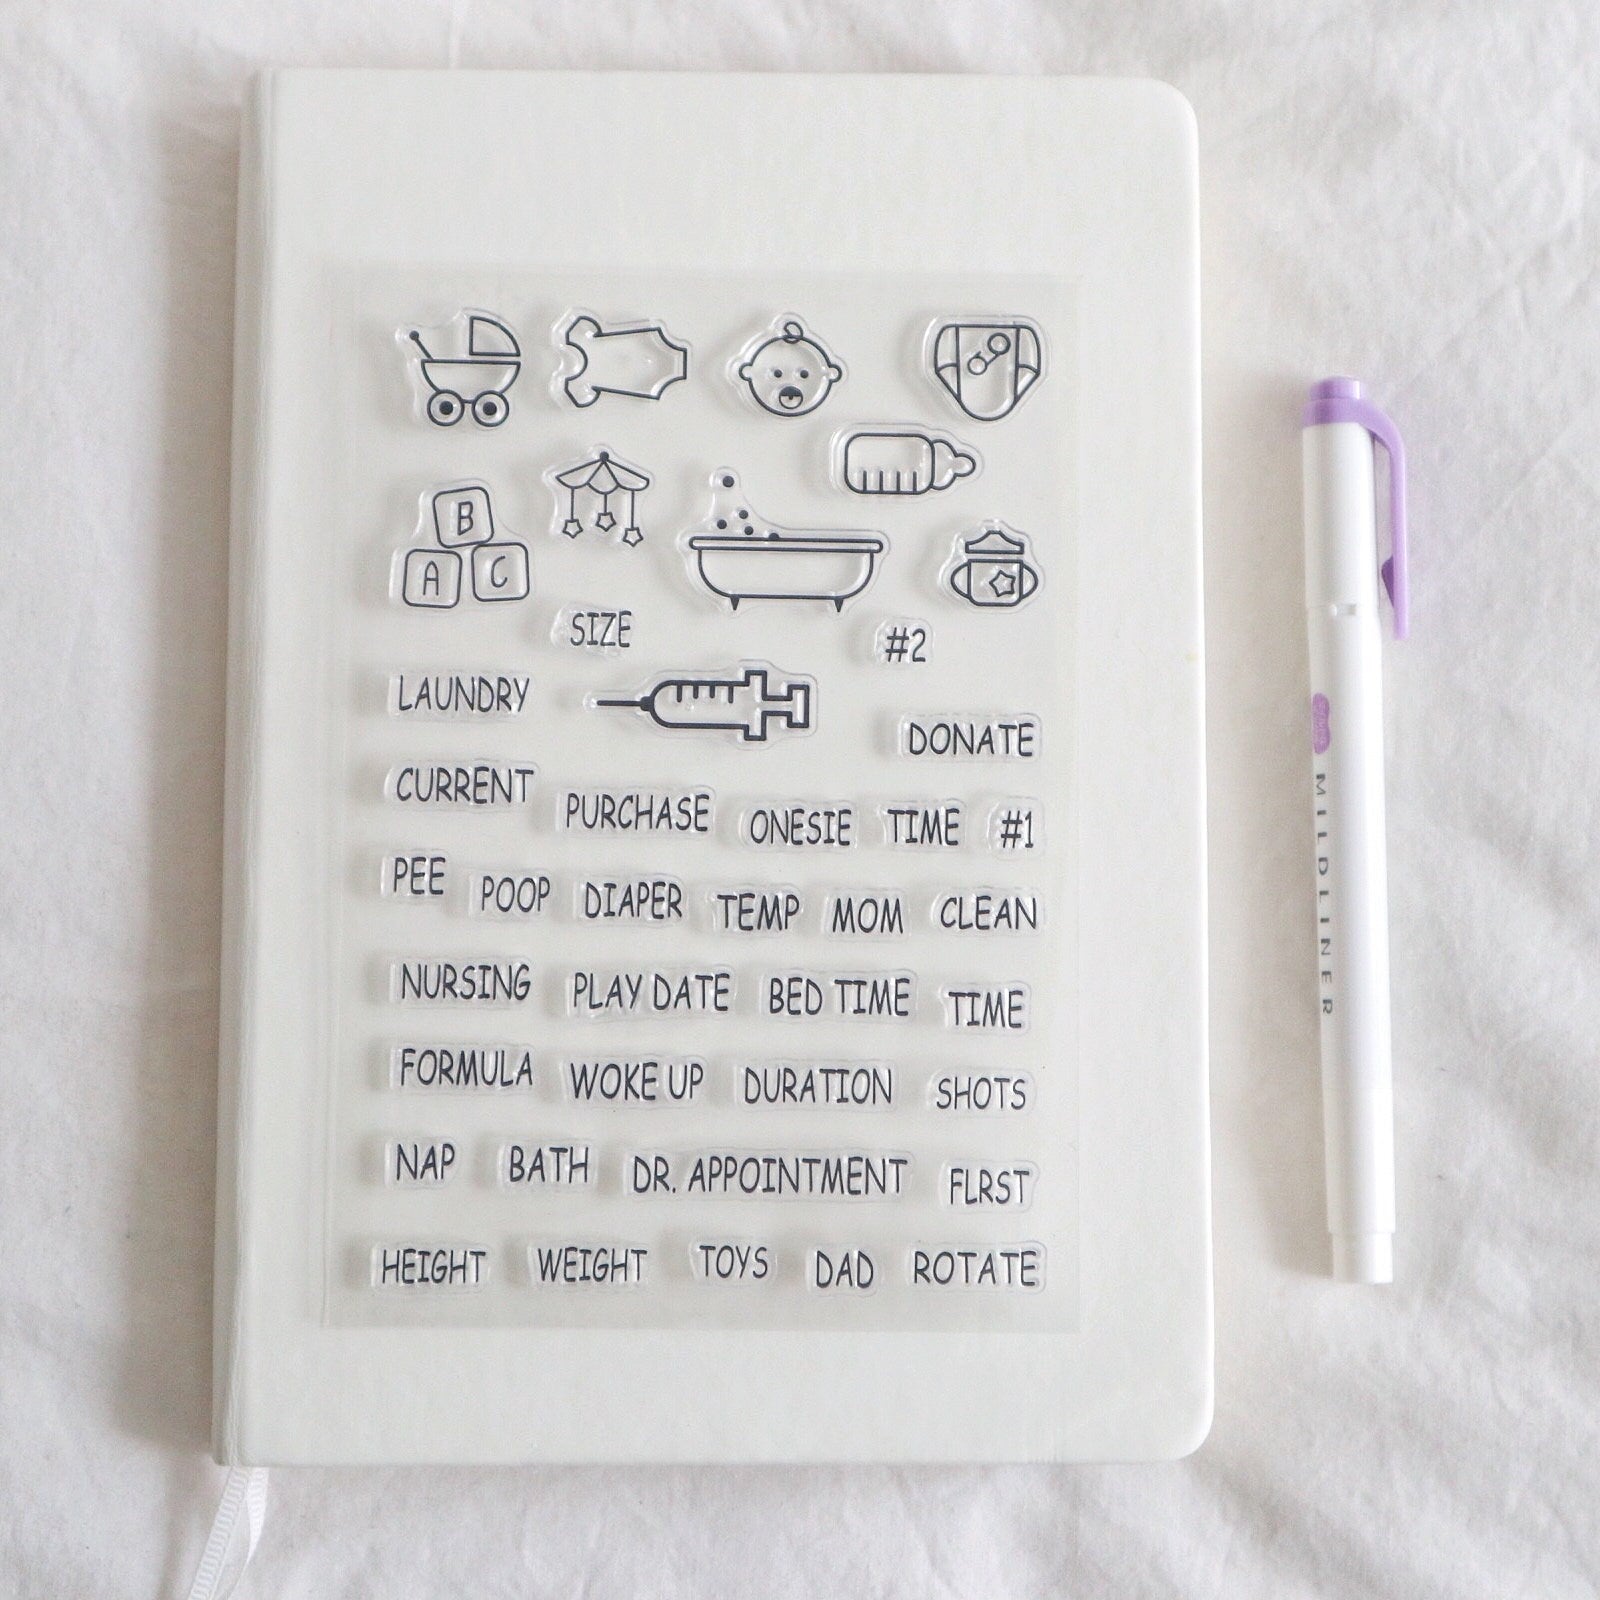 B
A C
SIZE
#2
LAUNDRY
DONATE
CURRENT
PURCHASE ONESIE TIME #1
PEE POOP DIAPER TEMP MOM CLEAN
NURSING PLAY DATE BED TIME TIME
FORMULA WOKE UP DURATION SHOTS
NAP BATH DR. APPOINTMENT FLRST
HEIGHT WEIGHT TOYS DAD ROTATE
MILDLINER